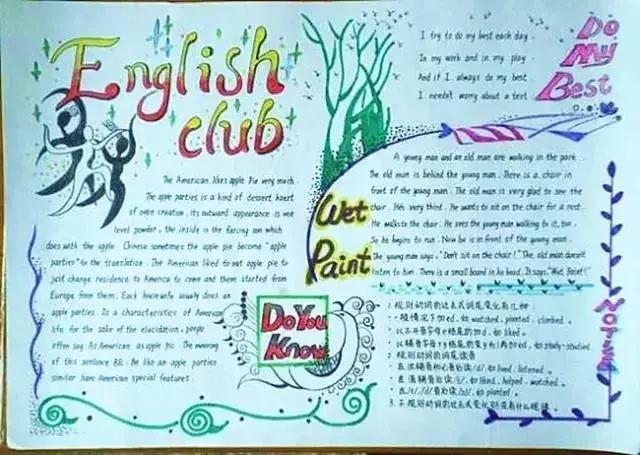 English
club
The American likes apple Pie very much.
The apple parties is a kind of dessert
of oven creation, its outward appearance is
level powder, the inside is the
does with the apple. Chinese sometimes the apple pie become "apple
parties" to the translation. The American liked to eat apple pie to
just change residence to America to come and them started from
Europe from them. Each housewife usually does an
apple parties. Is a characteristics of American
life for the sake of the elucidation, people
often say As American as apple pie. The meaning
of this sentence BE: Be like an apple parties
similar have American special features
Do You
Know
I try to do my best each day.
In my work and in my play.
And if I always do my best.
I needn't worry about a test.
Do
My
Best
Wet
Paint
A young man and an old man are walking in the park.
The old man is behind the young man. There is a chair in
front of the young man. The old man is very glad to see the
chair. very third. He wants to sit on the chair for a rest.
He walks to the chair. He sees the young man walking to it, too.
So he begins to run. Now he is in front of the young man.
The young man says, "Don't sit on the chair!" The old man doesn't
listen to him. There is a small board in his head. It says, "Wet Paint!"
1. 规则动词的过去式词尾变化有几种
一般情况下加ed, 如 watched, planted, climbed。
以不发音字母e结尾的加d, 如 liked。
以辅音字母+y结尾的变y为i再加ed, 如 study-studied
2. 规则动词的词尾读音
在浊辅音和元音后读/d/, 如 lived, listened。
在清辅音后读/t/, 如 liked, helped, watched。
在/t/, /d/音后读/id/, 如 planted。
3. 不规则动词的过去式变化